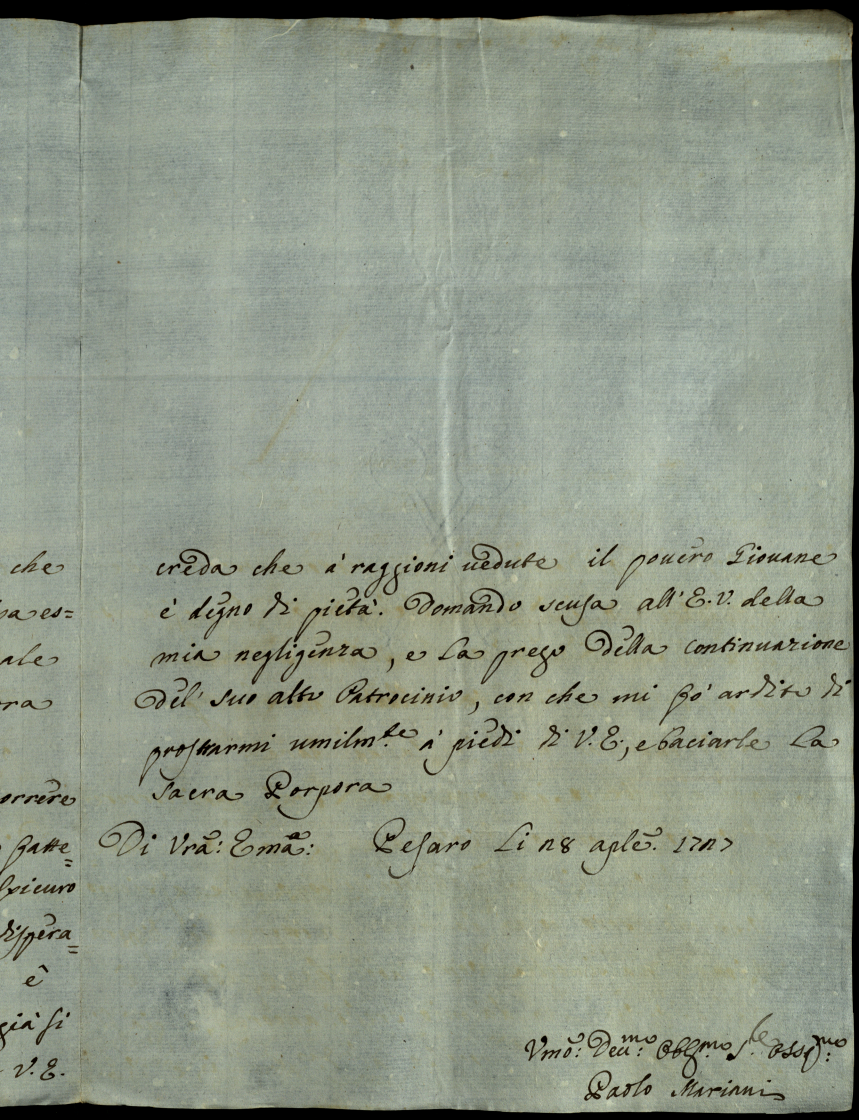 che
pa es=
ale
ora
orrere
fatte=
spicuro
dispera=
è
già si
V.E.
creda che à raggioni uedute il pouero Giouane
è degno di pietà. Domando scusa all'E.V. della
mia negligenza, e la prego della continuazione
del' suo alto Patrocinio, con che mi fò ardito di
prostrarmi umilm.te à piedi di V.E., e baciarle la
Sacra Porpora
Di Vrã: Emã: Pesaro li 28 aplẽ. 1727
Vmõ: Deu.mo: Obl.mo S.re Osseq.mo:
Paolo Mariani